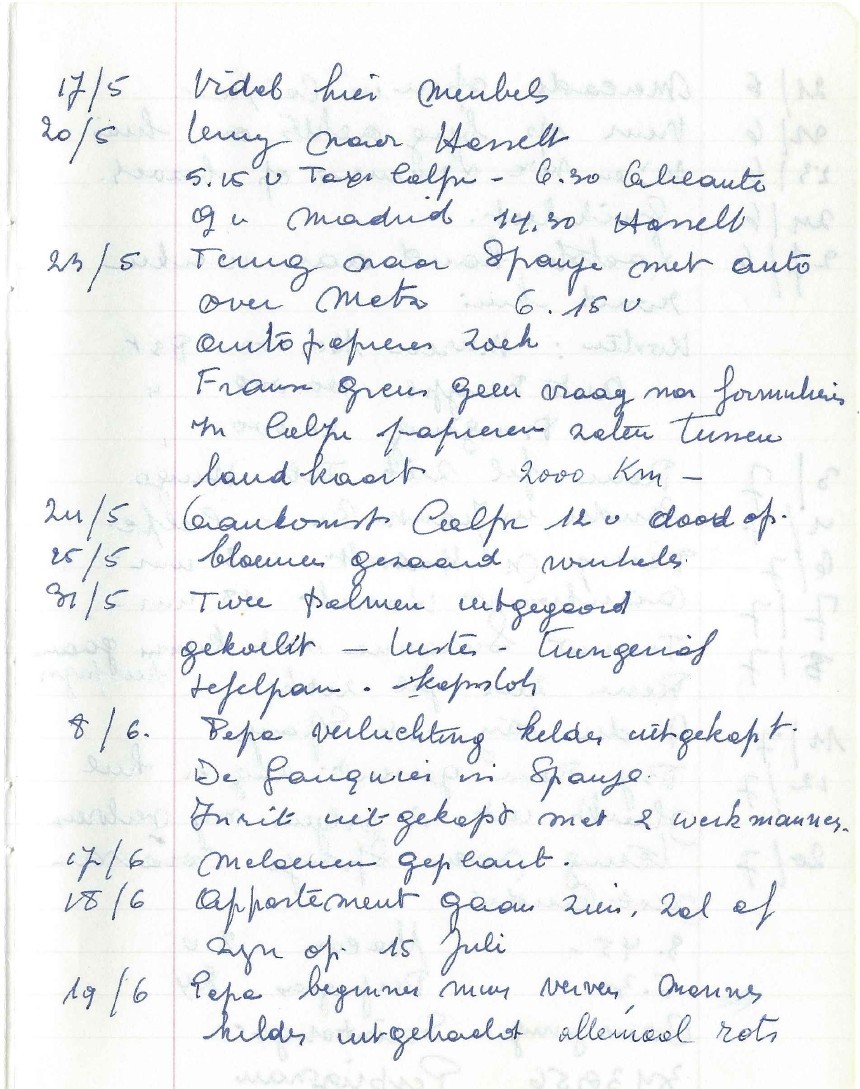 17/5 Vidal hier meubels
20/5 terug naar Hasselt
5.15 u Taxi Calpe - 6.30 Alicante
9 u Madrid 14.30 Hasselt
23/5 Terug naar Spanje met auto
over Metz 6.15 u
autopapieren zoek
Franse grens geen vraag nar formulieren
In Calpe papieren zaten tussen
landkaart 2000 Km -
24/5 Aankomst Calpe 12 u dood op.
25/5 bloemen gezaaid winkels
31/5 Twee palmen uitgegaord
gekocht - lusters - tuingerief
tefelpan.
8/6. Pepe verluchting kelder uitgekapt.
De in Spanje.
Inrit uitgekapt met 2 werkmannen.
17/6 meloenen geplant.
18/6 Appartement gaan zien, zal af
zyn op 15 Juli
19/6 Pepe beginnen muur verven, mannen
kelder uitgehackt allemaal rots